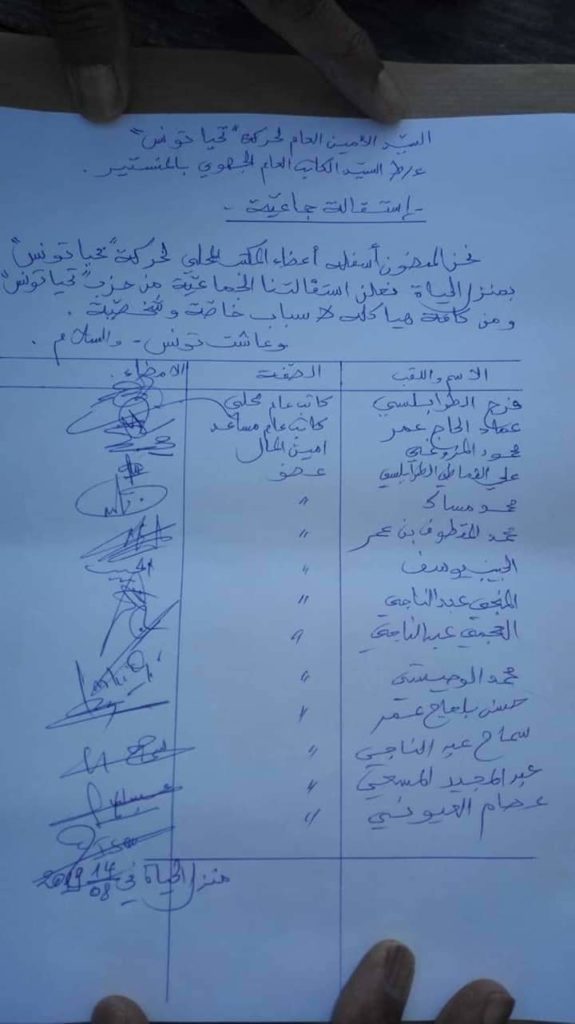 السيد الأمين العام لحركة "تحيا تونس"
ع/ط السيد الكاتب العام الجهوي بالمنستير .
- إستقالة جماعية -
نحن الممضون أسفله أعضاء المكتب المحلي لحركة "تحيا تونس"
بمنزل الحياة نعلن استقالتنا الجماعية من حزب "تحيا تونس"
و من كافة هياكله لأسباب خاصة و شخصية .
و عاشت تونس - والسلام .
الاسم واللقب الصفة الامضاء
فرج الطرابلسي كاتب عام محلي
عماد الحاج عمر كاتب عام مساعد
محمود المزوغي امين المال
علي الطرابلسي عضو
محمد مساك "
محمد المقطوف بن عمر "
الحبيب يوسف "
المنجي عبد الناجي "
العجمي عبد الناجي "
محمد الوحيشي "
حسن بلحاج عمر "
سماح عبد الناجي "
عبد المجيد المسعي "
عصام العيوني "
منزل الحياة في 14 08 2019